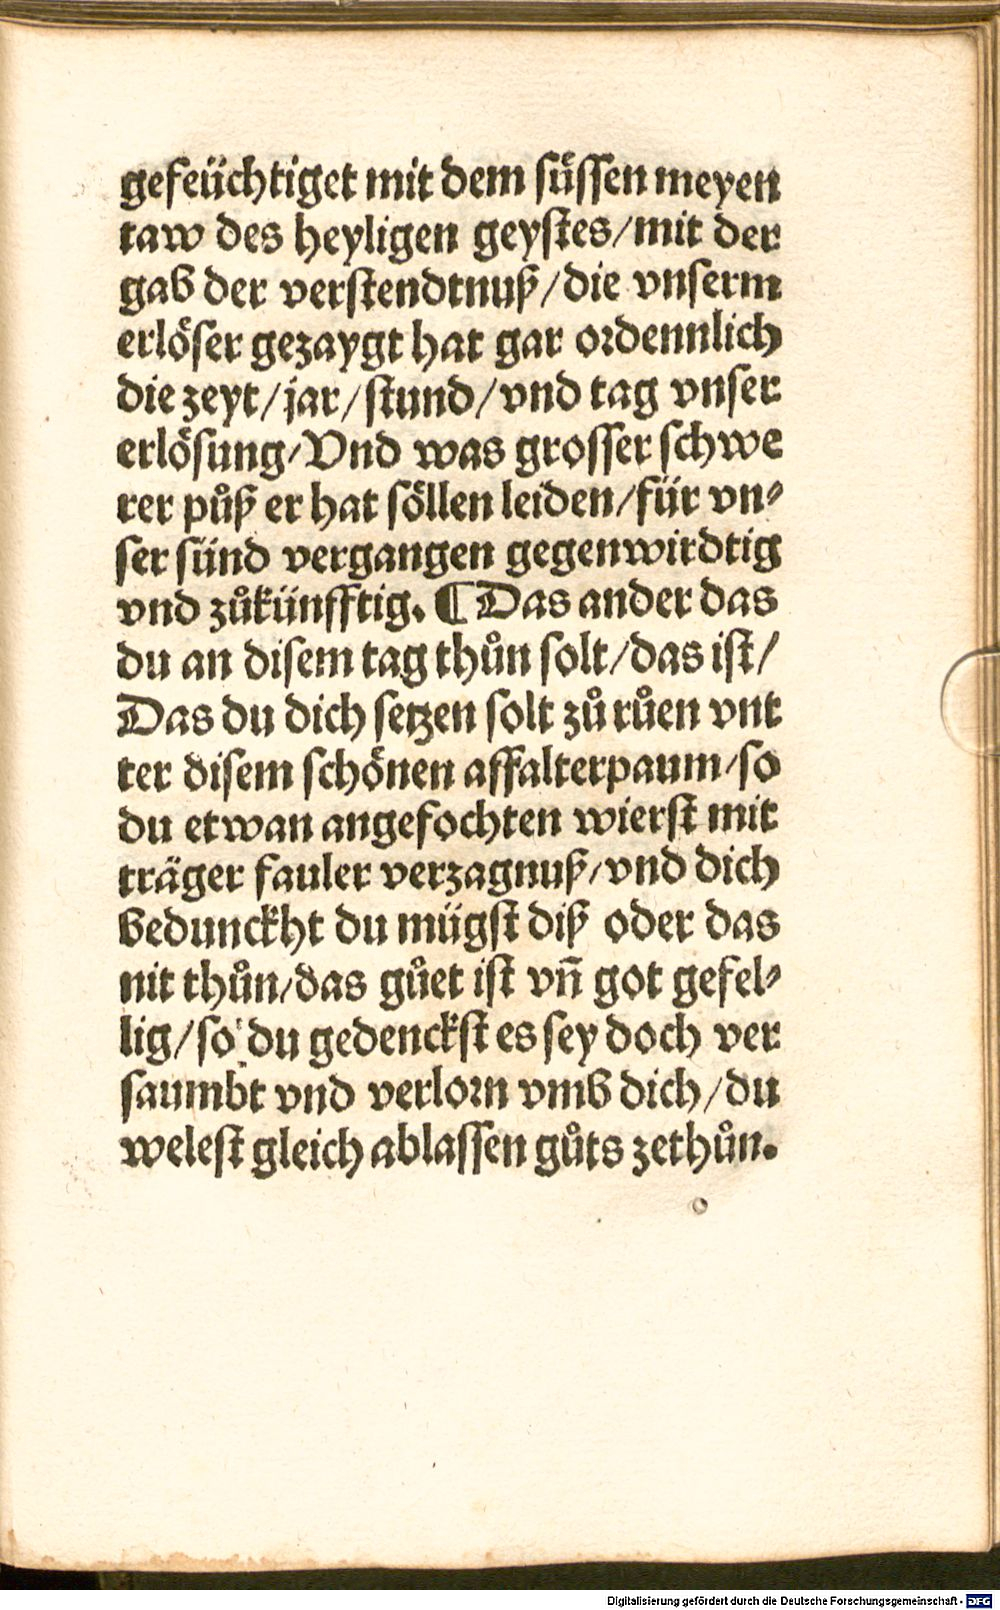 gefeüchtiget mit dem süssen meyen
taw des heyligen geystes/mit der
gab der verstendtnuß/die vnserm
erlöser gezaygt hat gar ordennlich
die zeyt/jar/stund/vnd tag vnser
erlösung/Vnd was grosser schwe
rer půß er hat söllen leiden/für vn⸗
ser sünd vergangen gegenwirdtig
vnd zůkünfftig. ¶ Das ander das
du an disem tag thůn solt/das ist/
Das du dich setzen solt zů růen vnt
ter disem schönen affalterpaum/so
du etwan angefochten wierst mit
träger fauler verzagnuß/vnd dich
bedunckht du mügst diß oder das
nit thůn/das gůet ist vn̄ got gefel⸗
lig/so du gedenckst es sey doch ver
saumbt vnd verlorn vmb dich/du
welest gleich ablassen gůts zethůn.
Digitalisierung gefördert durch die Deutsche Forschungsgemeinschaft - DFG